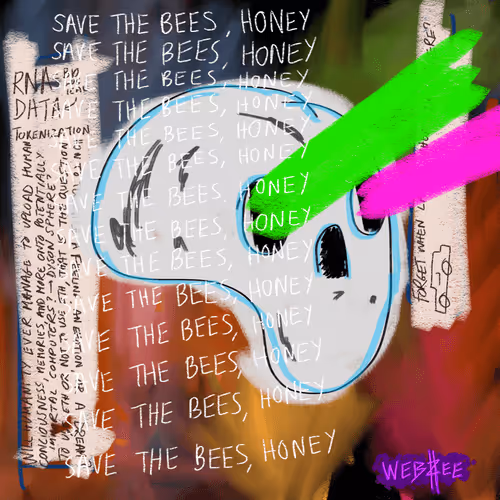 SAVE THE BEES, HONEY
SAVE THE BEES, HONEY
SAVE THE BEES, HONEY
SAVE THE BEES, HONEY
SAVE THE BEES, HONEY
SAVE THE BEES, HONEY
SAVE THE BEES, HONEY
SAVE THE BEES, HONEY
SAVE THE BEES, HONEY
SAVE THE BEES, HONEY
SAVE THE BEES, HONEY
SAVE THE BEES, HONEY
SAVE THE BEES, HONEY
SAVE THE BEES, HONEY
RNA
DATA
TOKENIZATION
WILL HUMANITY EVER MANAGE TO UPLOAD HUMAN
CONCIOUSNESS, MEMORIES, AND MORE ONTO POTENTIALLY
IMMORTAL COMPUTERS? → DYSON SPHERE?
TO USE ETH OR NOT TO USE ETH, THAT'S THE QUESTION
WHEN